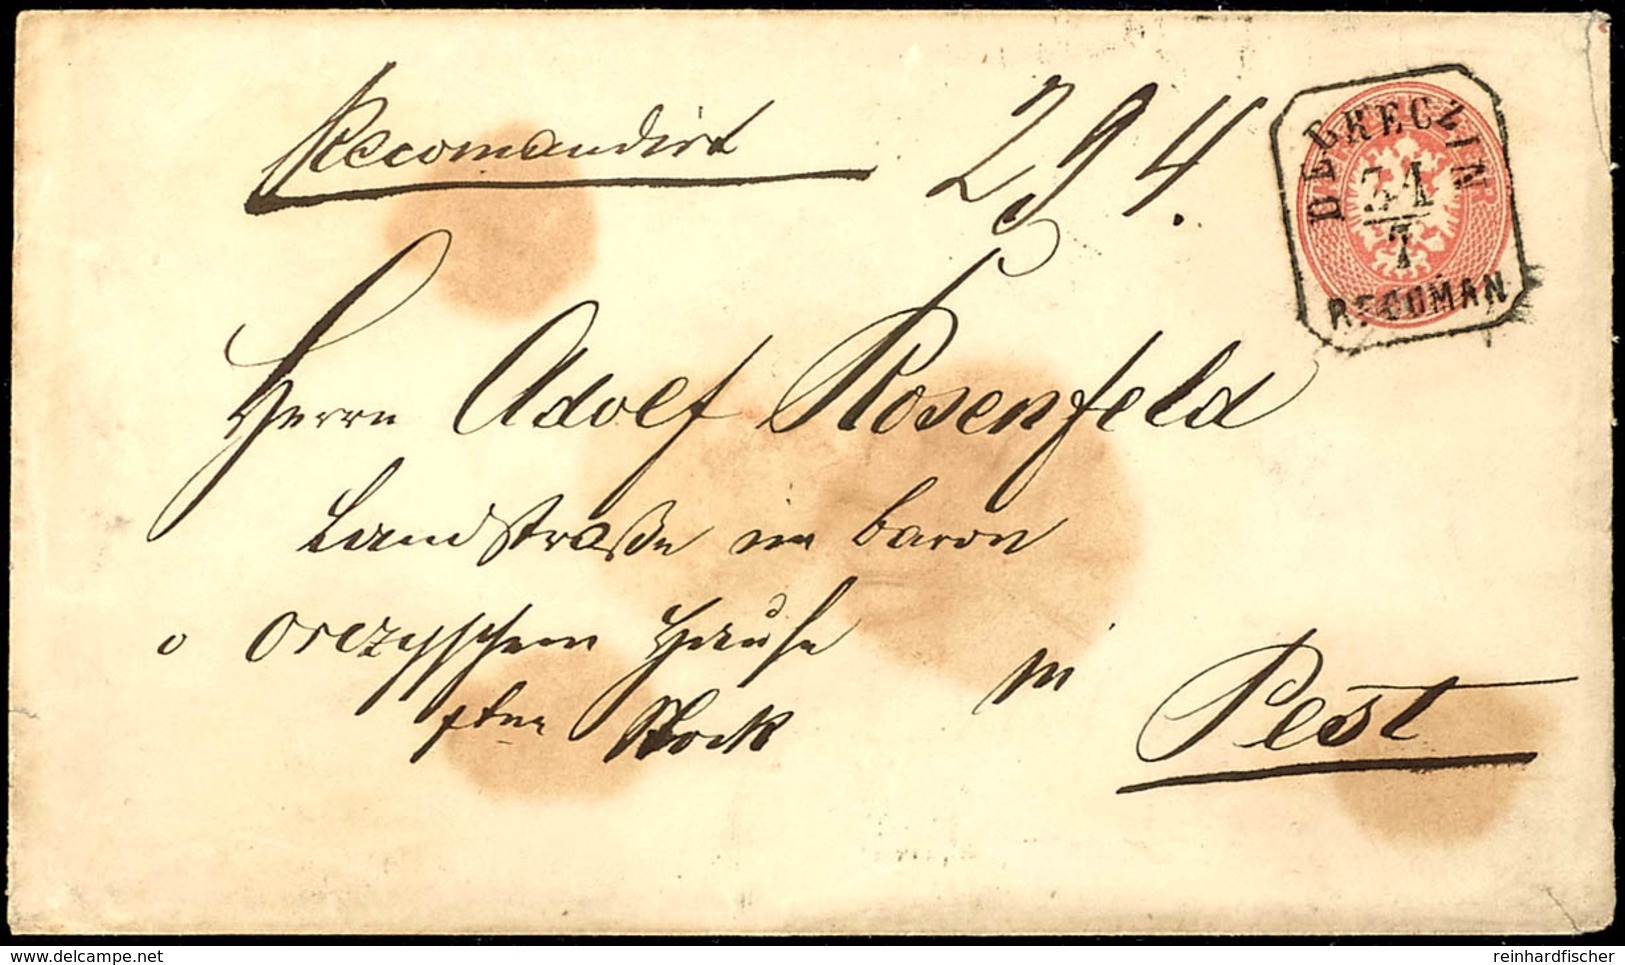 Recomandirt 294.
DEBRECZIN
31
7
RECOMAN
Herrn Adolf Rosenfeld
Landstraße im Baron
Orczyschen Hause
Stock in Pest
www.delcampe.net
reinhardfischer